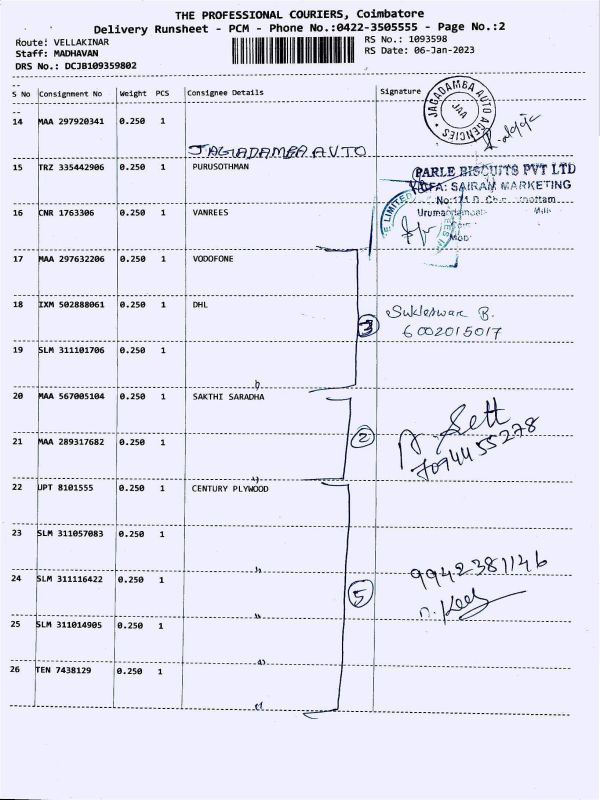 THE PROFESSIONAL COURIERS, Coimbatore
Delivery Runsheet - PCM - Phone No.:0422-3505555 - Page No.:2
Route: VELLAKINAR
Staff: MADHAVAN
DRS No.: DCJB109359802
RS No.: 1093598
RS Date: 06-Jan-2023
S No Consignment No Weight PCS Consignee Details Signature
JAGADAMBA AUTO AGENCIES
JAA
14 MAA 297920341 0.250 1
JAGADAMBA AUTO
15 TRZ 335442906 0.250 1 PURUSOTHMAN
PARLE BISCUITS PVT LTD
CFA: SAIRAM MARKETING
16 CNR 1763306 0.250 1 VANREES
LIMITED
17 MAA 297632206 0.250 1 VODOFONE
18 IXM 502888061 0.250 1 DHL
3
Sukleswar B.
6002015017
19 SLM 311101706 0.250 1
20 MAA 567005104 0.250 1 SAKTHI SARADHA
21 MAA 289317682 0.250 1
2
A Sett
7094455278
22 UPT 8101555 0.250 1 CENTURY PLYWOOD
23 SLM 311057083 0.250 1
24 SLM 311116422 0.250 1
5
9942381146
25 SLM 311014905 0.250 1
26 TEN 7438129 0.250 1